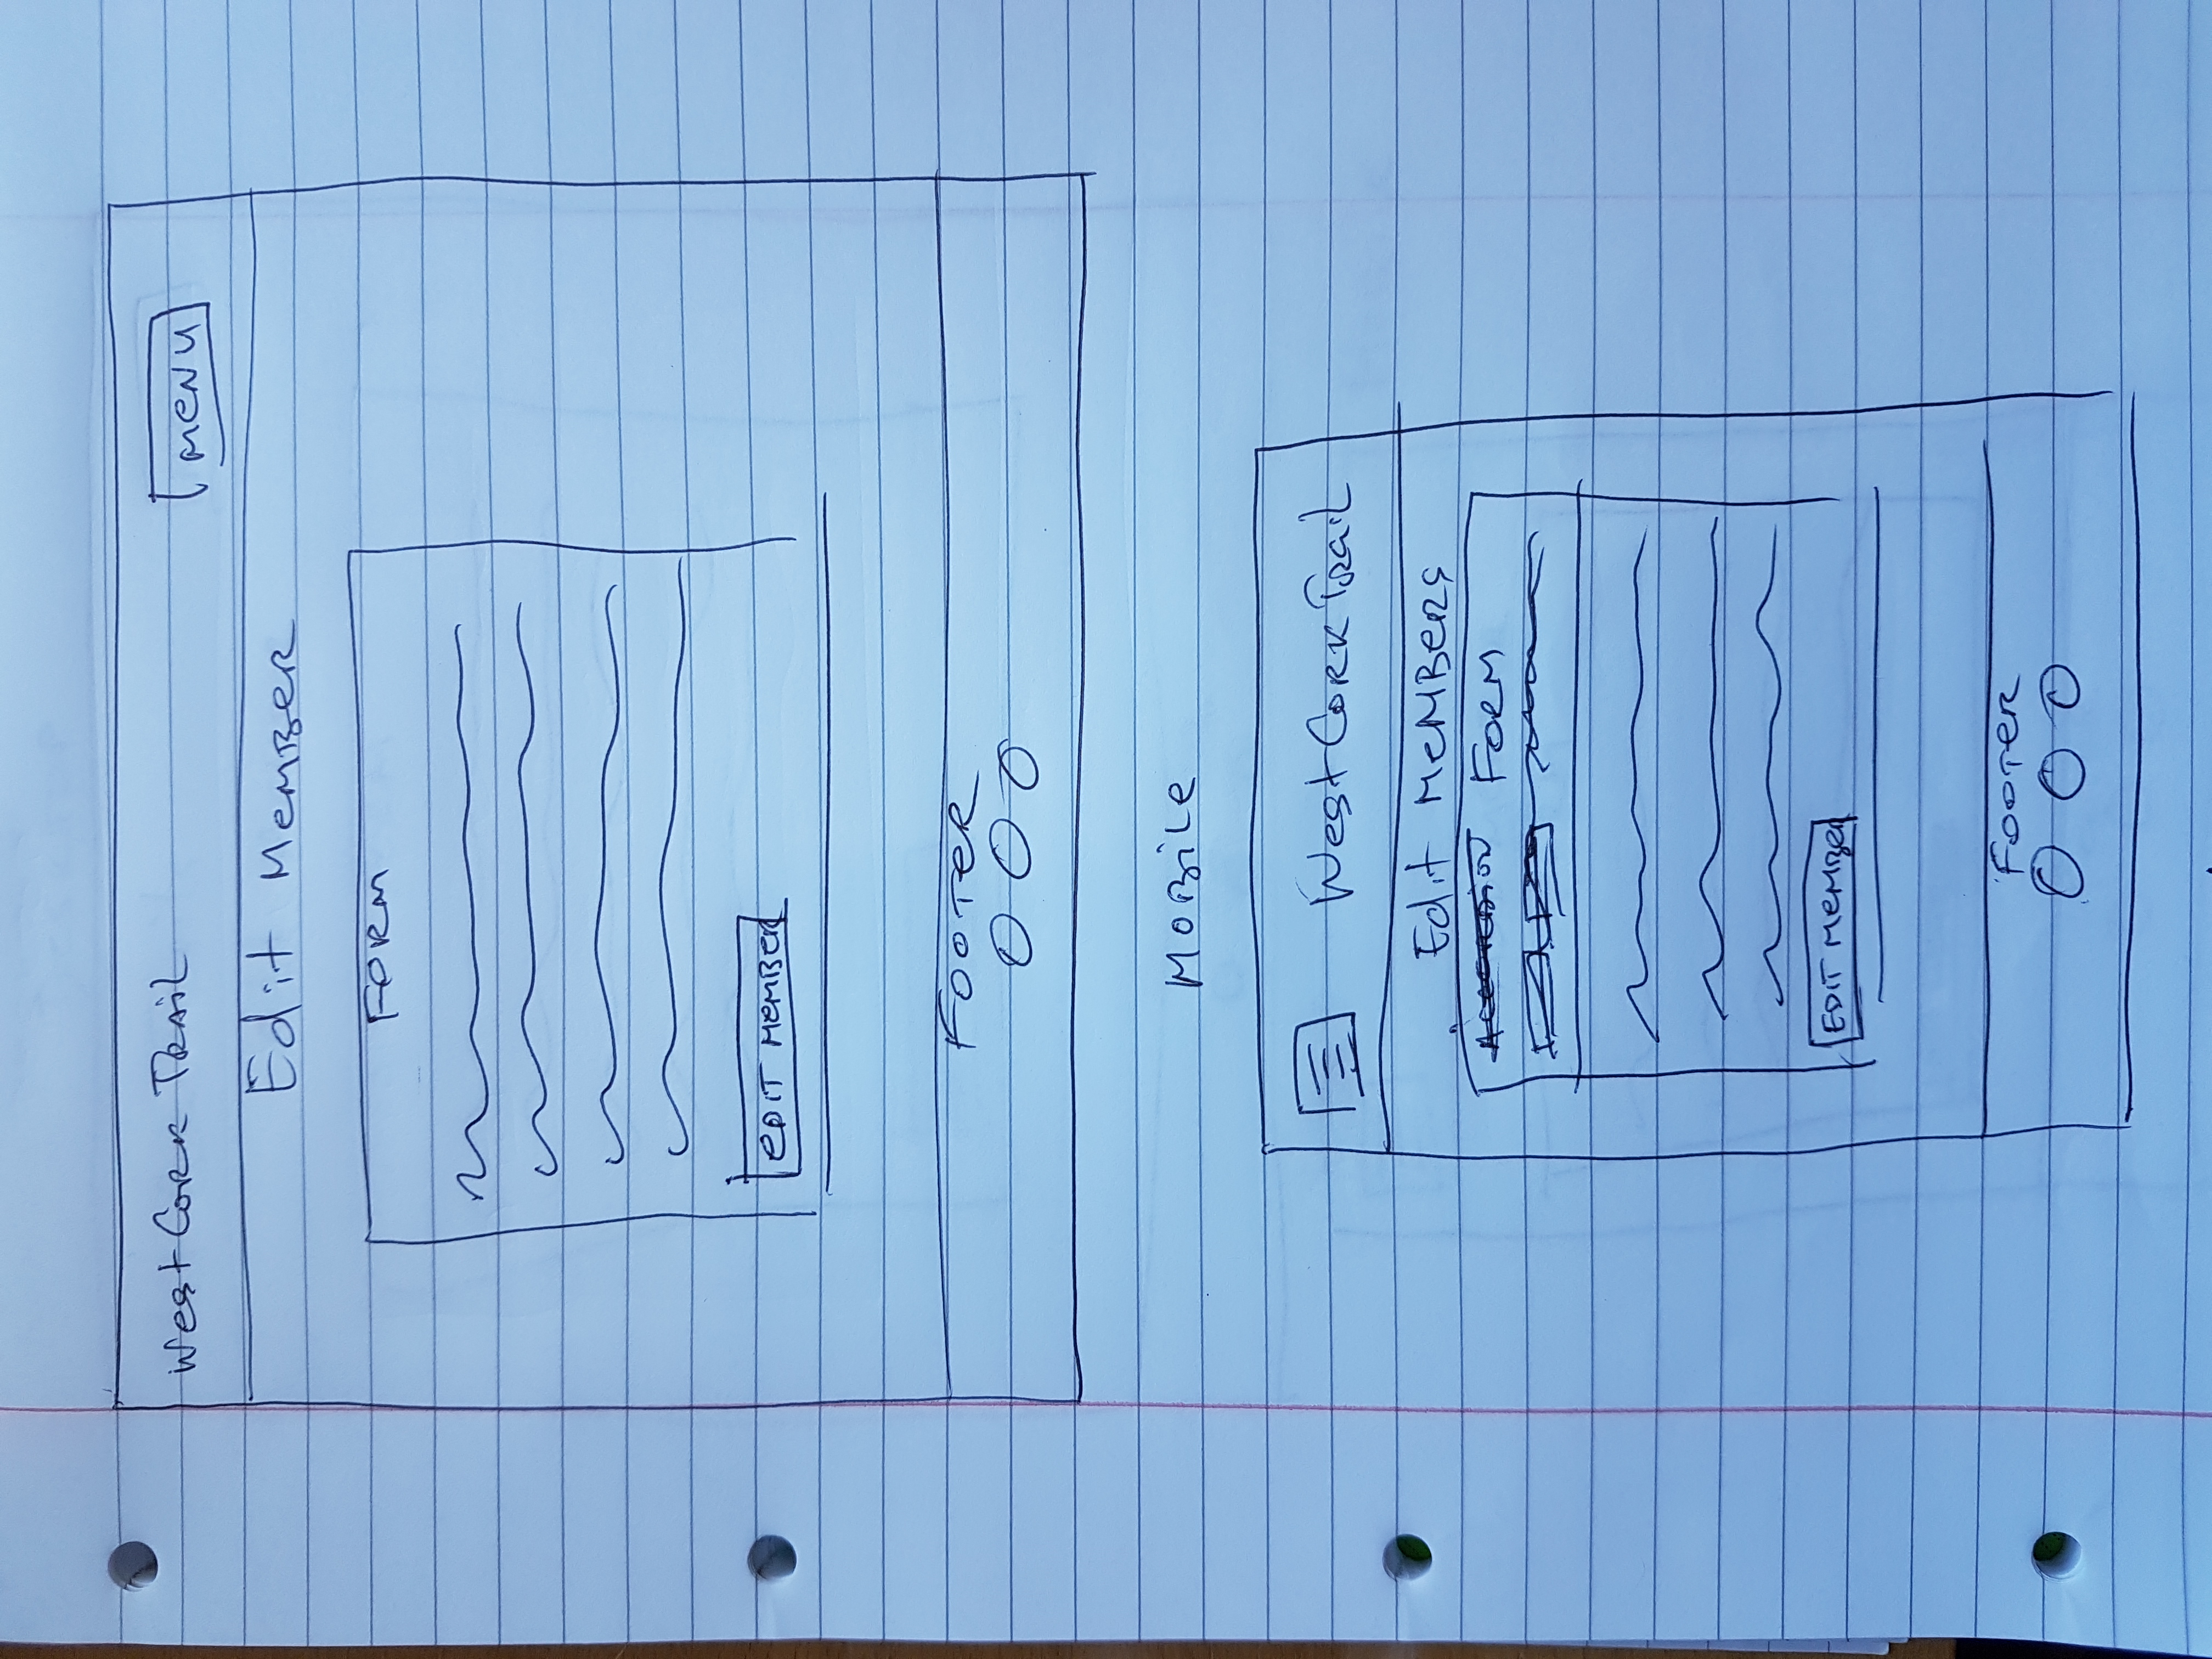 West Cork Trail MENU
Edit Member
FORM
EDIT MEMBER
FOOTER
MOBILE
West Cork Trail
Edit MEMBERS
Accordion FORM
EDIT MEMBER
FOOTER